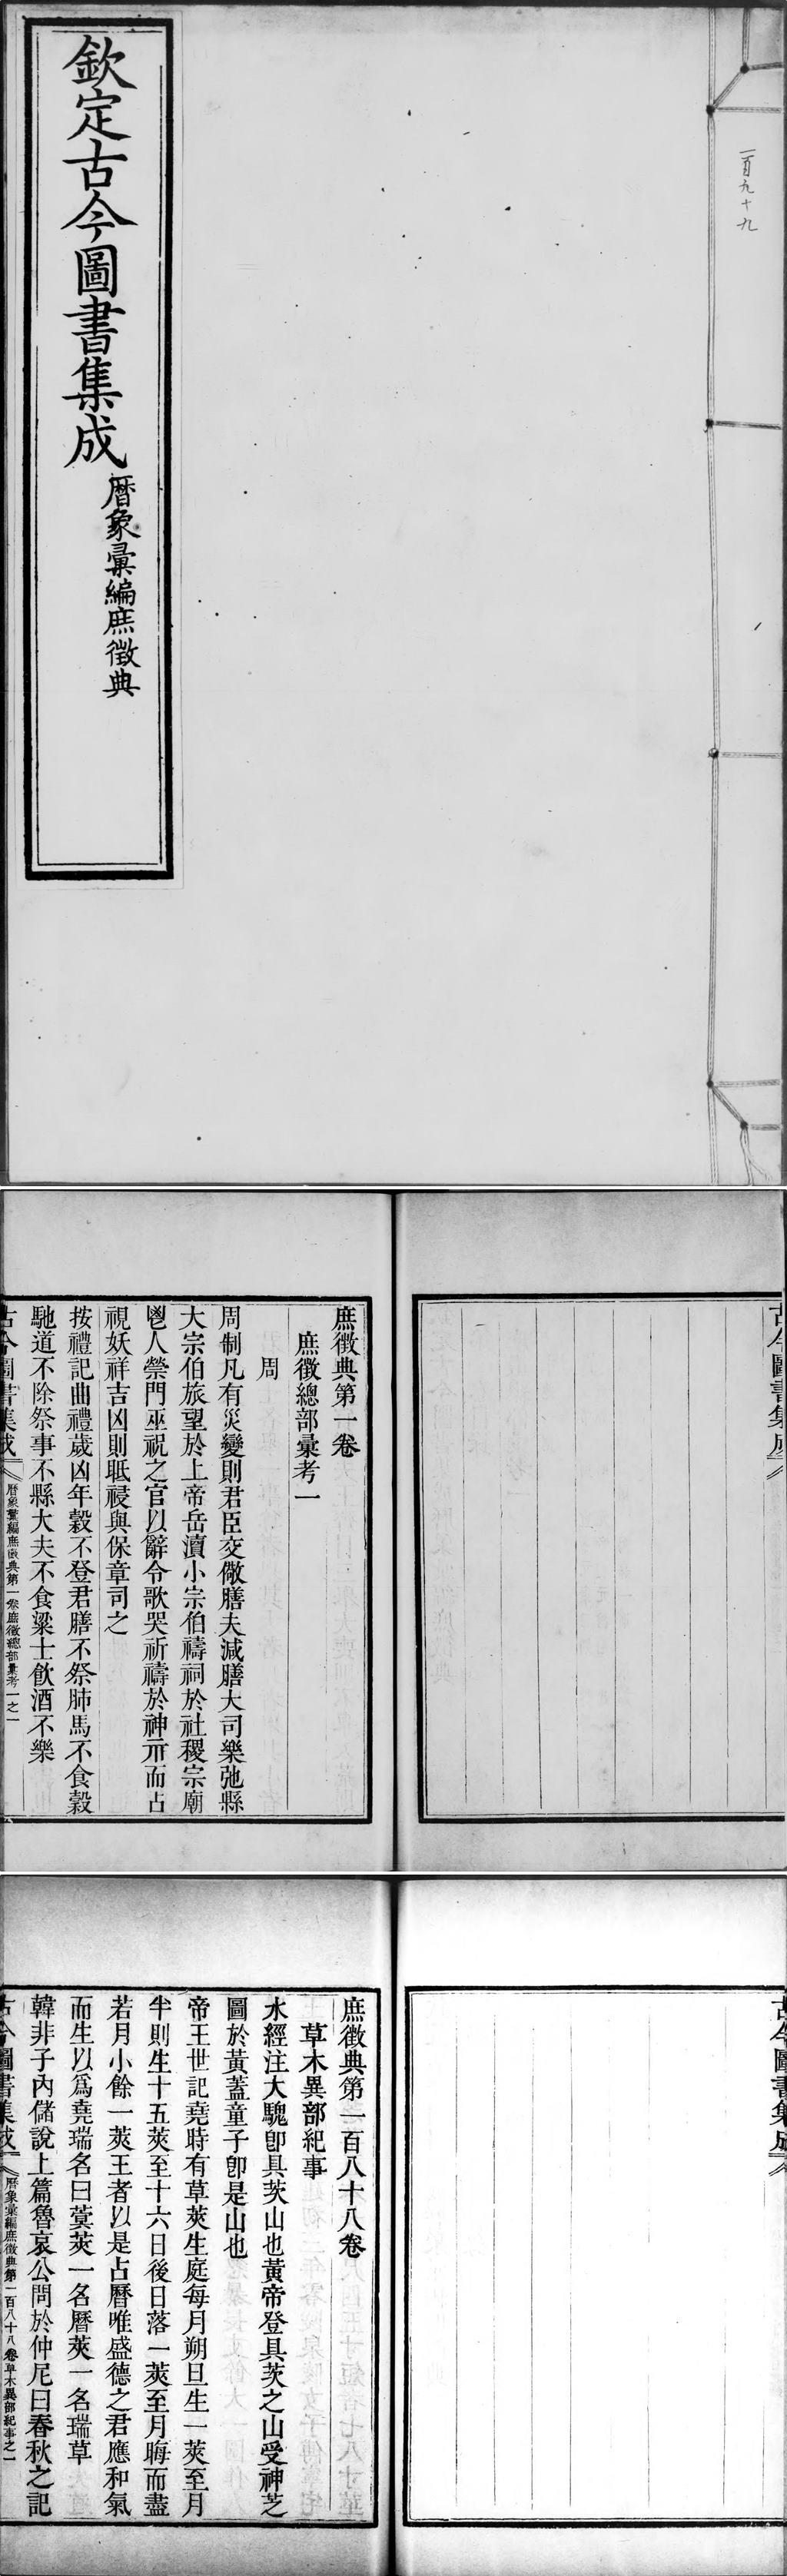 一百九十九
欽定古今圖書集成
曆象彙編庶徵典
古今圖書集成
庶徵典第一卷
庶徵總部彙考一
周
周制凡有災變則君臣交儆膳夫減膳大司樂弛縣
大宗伯旅望於上帝岳瀆小宗伯禱祠於社稷宗廟
鬯人禜門巫祝之官以辭令歌哭祈禱於神示而占
視妖祥吉凶則眡祲與保章司之
按禮記曲禮歲凶年穀不登君膳不祭肺馬不食穀
馳道不除祭事不縣大夫不食粱士飲酒不樂
古今圖書集成
曆象彙編庶徵典第一卷庶徵總部彙考一之一
古今圖書集成
庶徵典第一百八十八卷
草木異部紀事
水經注大騩卽具茨山也黃帝登具茨之山受神芝
圖於黃蓋童子卽是山也
帝王世記堯時有草莢生庭每月朔旦生一莢至月
半則生十五莢至十六日後日落一莢至月晦而盡
若月小餘一莢王者以是占曆唯盛德之君應和氣
而生以爲堯瑞名曰蓂莢一名曆莢一名瑞草
韓非子內儲說上篇魯哀公問於仲尼曰春秋之記
古今圖書集成
曆象彙編庶徵典第一百八十八卷草木異部紀事之一